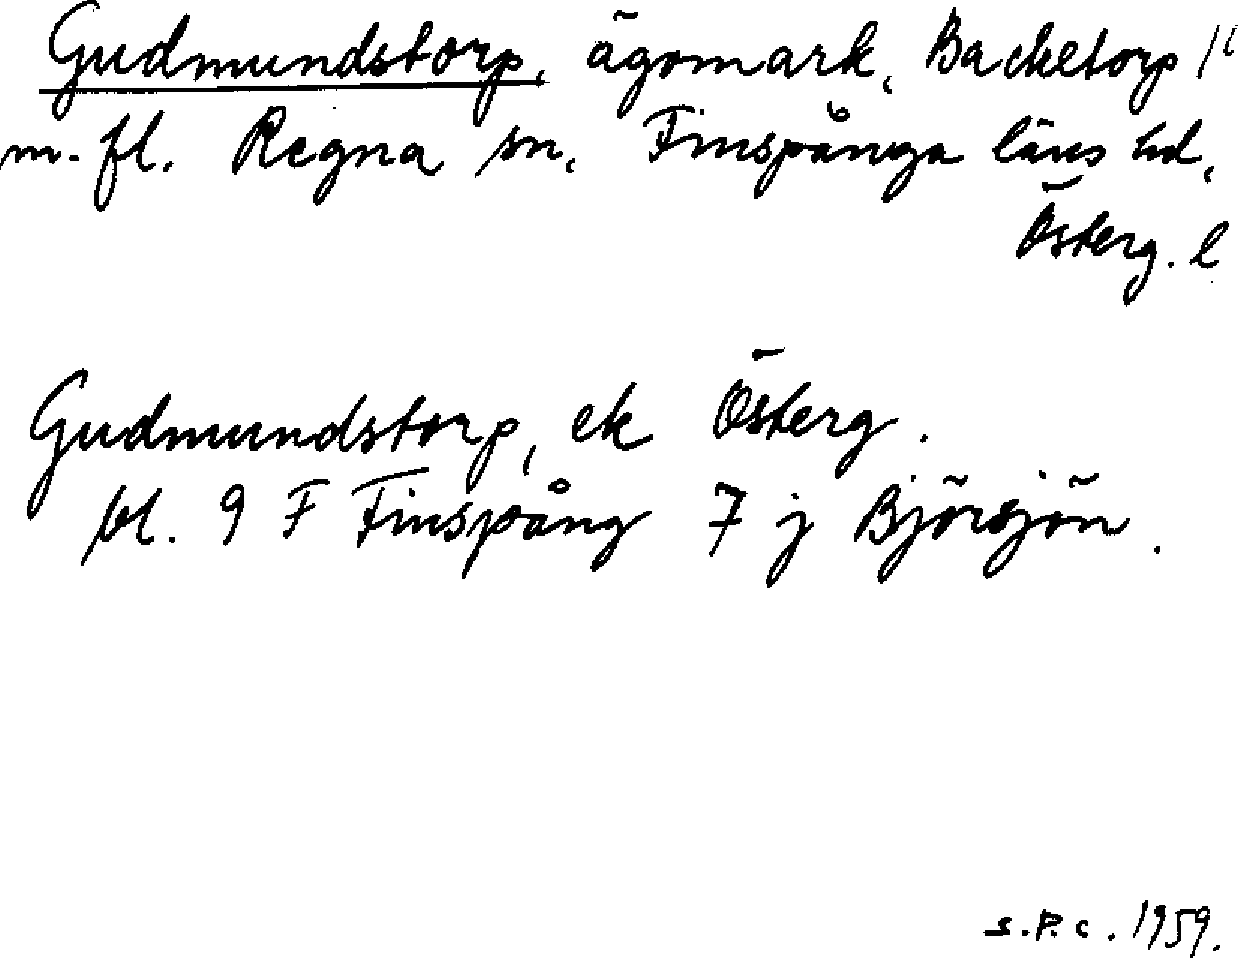 Gudmundstorp, ägomark, Backetorp 1¹
m. fl. Regna sn, Finspånga läns hd,
Österg. l
Gudmundstorp, ek Österg.
bl. 9 F Finspång 7 j Björsjön.
S.P.c. 1959.